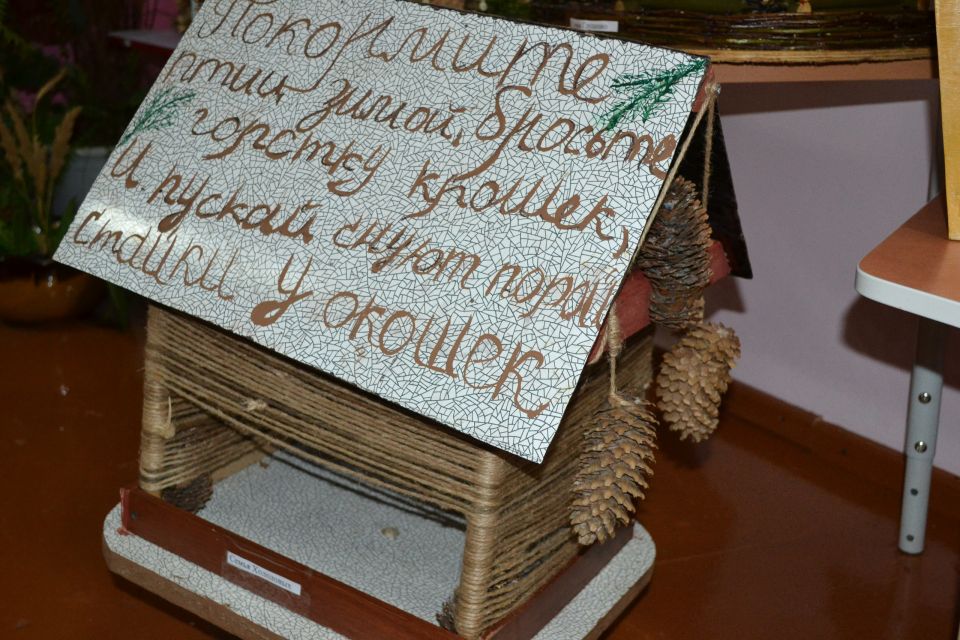 Покормите
птиц зимой, бросьте
горстку крошек,
И пускай снуют порой
стайки у окошек
Семья Холоповых